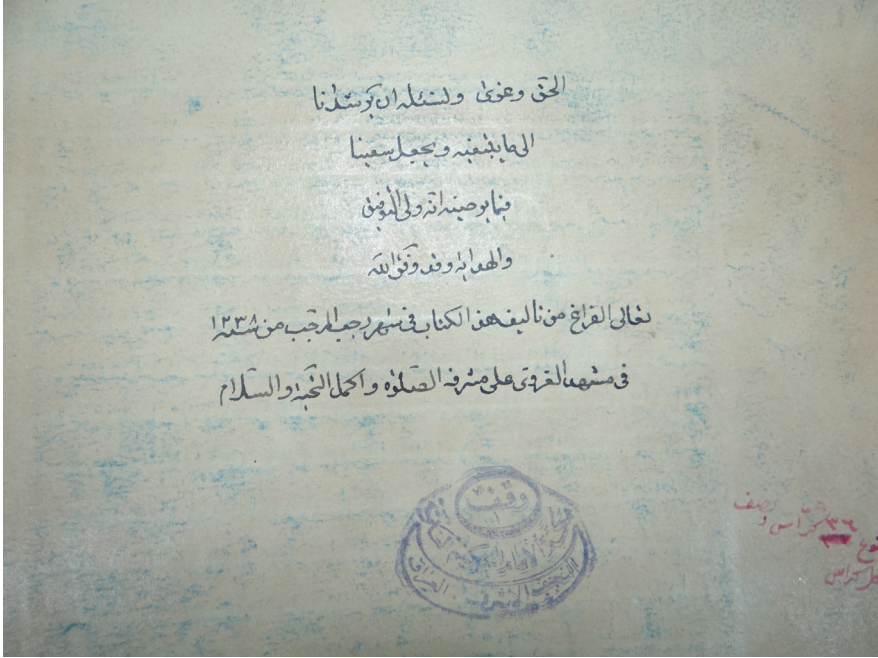 الحق وعونى ولنسئله ان يرشدنا
الى ما ينبغيه ويجعل سعينا
فيما يوصينه انه ولى التوفيق
والهداية وقد وفق الله
تعالى الفراغ من تاليف هذا الكتاب فى شهر رجب المرجب من سنة ١٢٣٨
فى مشهد الغروى على مشرفه الصلوة واكمل التحية والسلام
وقف
النجف الاشرف العراق
٣٦ كراس ونصف
كل كراس